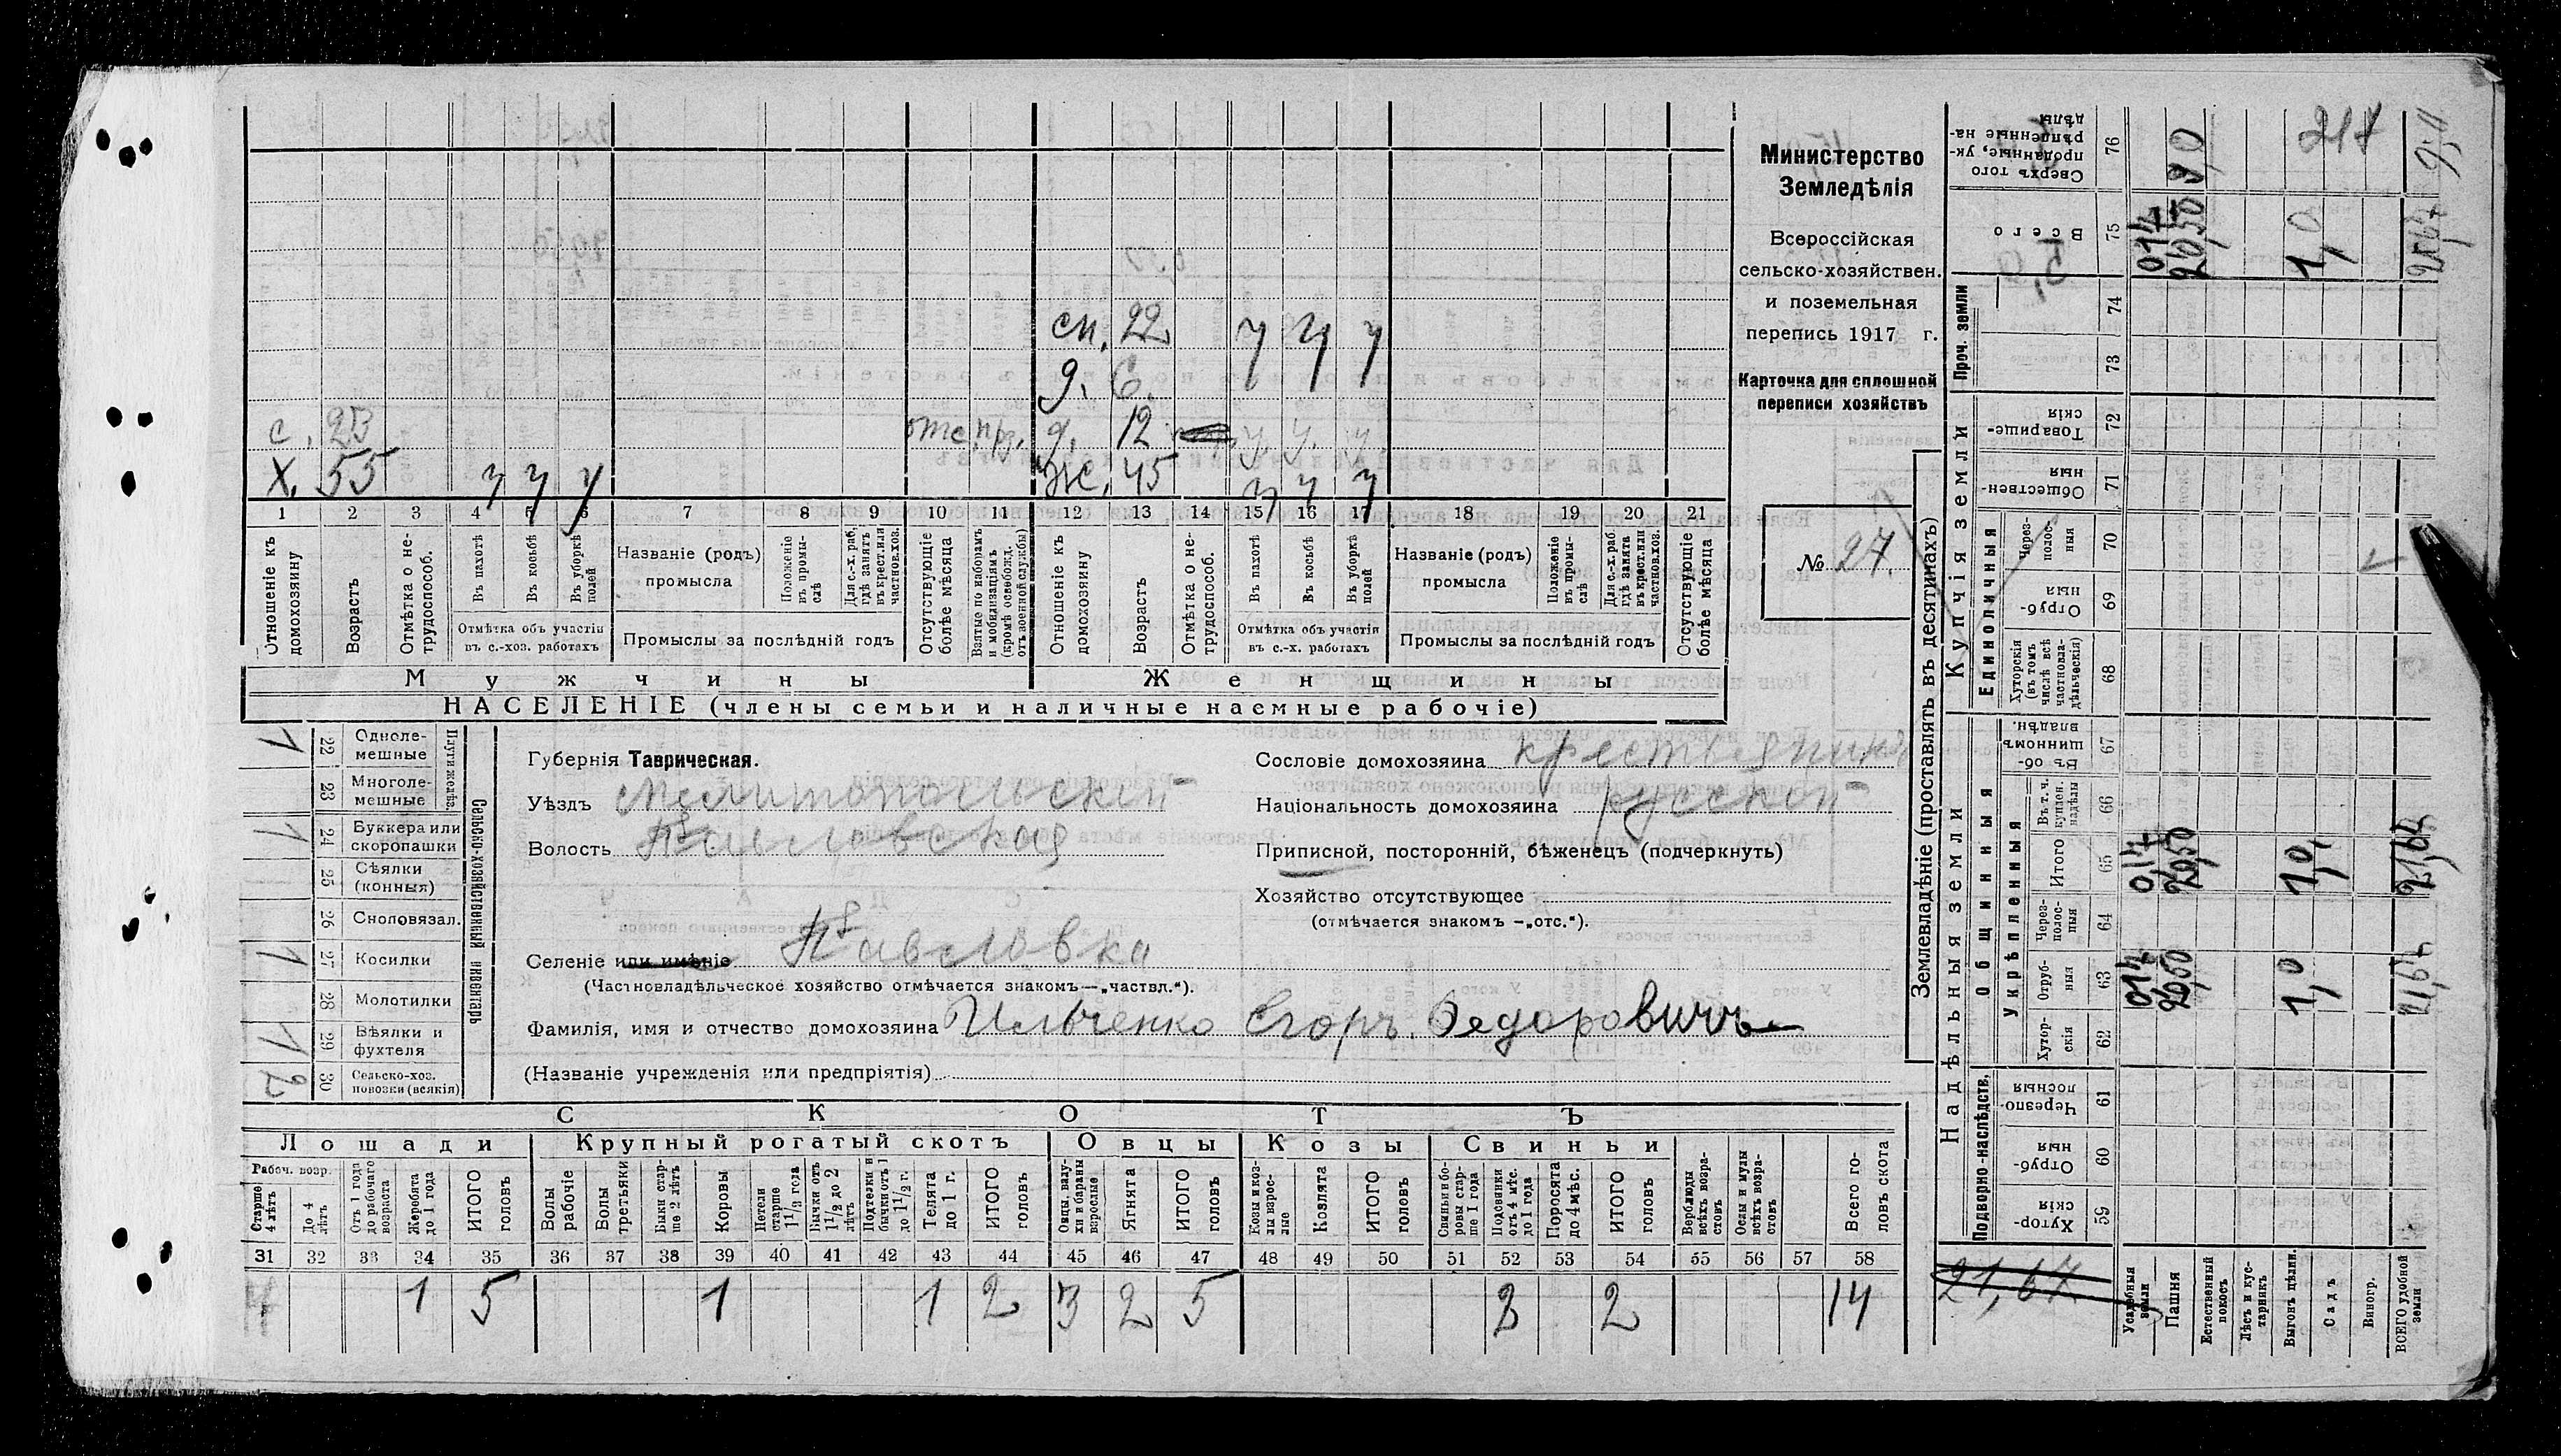 сн. 22 у у у
д. 6.
с. 23 отс. прз. д. 12 у. у. у
Х. 55 у у у ж. 45 у у у
1 2 3 4 5 6 7 8 9 10 11 12 13 14 15 16 17 18 19 20 21
Отношеніе къ домохозяину
Возрастъ
Отмѣтка о нетрудоспособ.
Въ пахотѣ
Въ косьбѣ
Въ уборкѣ полей
Отмѣтка объ участіи въ с.-хоз. работахъ
Названіе (родъ) промысла
Положеніе въ промыслѣ
Для с.-х. раб. гдѣ занятъ въ крест. или частнов. хоз.
Промыслы за послѣдній годъ
Отсутствующіе болѣе мѣсяца
Взятые по наборамъ и мобилизаціямъ (кромѣ освобожд. отъ военной службы)
Отношеніе къ домохозяину
Возрастъ
Отмѣтка о нетрудоспособ.
Въ пахотѣ
Въ косьбѣ
Въ уборкѣ полей
Отмѣтка объ участіи въ с.-х. работахъ
Названіе (родъ) промысла
Положеніе въ промыслѣ
Для с.-х. раб. гдѣ занята въ крест. или частнов. хоз.
Промыслы за послѣдній годъ
Отсутствующіе болѣе мѣсяца
Мужчины Женщины
НАСЕЛЕНІЕ (члены семьи и наличные наемные рабочіе)
Министерство
Земледѣлія
Всероссійская
сельско-хозяйствен.
и поземельная
перепись 1917 г.
Карточка для сплошной
переписи хозяйствъ
№ 27.
Сельско-хозяйственный инвентарь
Плуги желѣз.
1 22 Одноле-мешные
23 Многоле-мешные
1 24 Буккера или скоропашки
25 Сѣялки (конныя)
26 Сноповязал.
1 27 Косилки
28 Молотилки
1 29 Вѣялки и фухтеля
2 30 Сельско-хоз. повозки (всякія)
Губернія Таврическая.
Уѣздъ Мелитопольскій
Волость Павловская
Селеніе или имѣніе Павловка
(Частновладѣльческое хозяйство отмѣчается знакомъ—„частвл.“).
Фамилія, имя и отчество домохозяина Ильченко Егоръ Федоровичъ
(Названіе учрежденія или предпріятія)
Сословіе домохозяина крестьянинъ
Національность домохозяина русскій
Приписной, посторонній, бѣженецъ (подчеркнуть)
Хозяйство отсутствующее
(отмѣчается знакомъ —„отс.“).
СКОТЪ
Лошади Крупный рогатый скотъ Овцы Козы Свиньи
Рабоч. возр.
Старше 4 лѣтъ
До 4 лѣтъ
Отъ 1 года до рабочаго возраста
Жеребята до 1 года
ИТОГО головъ
Волы рабочіе
Волы третьяки
Быки старше 2 лѣтъ
Коровы
Нетели старше 1 1/2 года
Бычки отъ 1 1/2 до 2 лѣтъ
Подтелки и бычки отъ 1 до 1 1/2 г.
Телята до 1 г.
ИТОГО головъ
Овцы, валухи и бараны взрослые
Ягнята
ИТОГО головъ
Козы и козлы взрослые
Козлята
ИТОГО головъ
Свиньи и боровы старше 1 года
Подсвинки отъ 4 мѣс. до 1 года
Поросята до 4 мѣс.
ИТОГО головъ
Верблюды всѣхъ возрастовъ
Ослы и мулы всѣхъ возрастовъ
Всего головъ скота
31 32 33 34 35 36 37 38 39 40 41 42 43 44 45 46 47 48 49 50 51 52 53 54 55 56 57 58
4 1 5 1 1 2 3 2 5 2 2 14
Землевладѣніе (проставлять въ десятинахъ)
Надѣльныя земли Купчія земли Проч. земли
Подворно-наслѣдств.
Общинныя
Укрѣпленныя
Единоличныя
Хуторскія 59
Отрубныя 60
Черезполосныя 61
Хуторскія 62
Отрубныя 63
Черезполосныя 64
Итого 65
Въ т. ч. куплен. надѣлы 66
Въ общинномъ владѣн. 67
Хуторскія (въ томъ числѣ всѣ частновладѣльческія) 68
Отрубныя 69
Черезполосныя 70
Общественныя 71
Товарищескія 72
73
74
Всего 75
Сверхъ того проданные, укрѣпленные надѣлы 76
21,67
Усадебныя земли 0,14 0,14 0,14
Пашня 20,50 20,50 20,50
Естественный покосъ
Лѣсъ и кустарникъ
Выгонъ цѣлин. 1,0 1,0 1,0
Садъ
Виногр.
ВСЕГО удобной земли 21,64 21,64 21,64
217